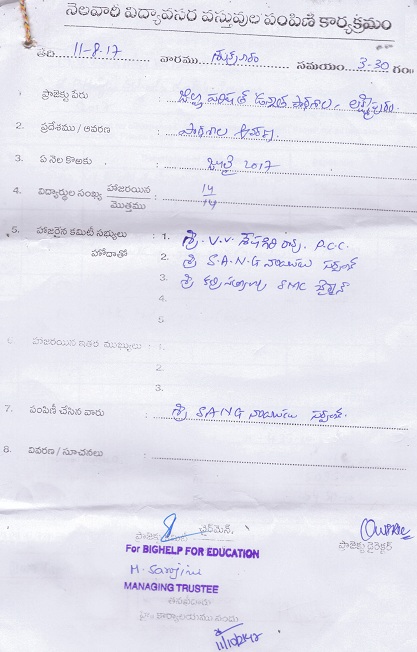 నెలవారి విద్యావసర వస్తువుల పంపిణి కార్యక్రమం
తేది 11-8-17 వారము శుక్రవారం సమయం 3-30 గం
1. ప్రాజెక్టు పేరు : జిల్లా పరిషత్ ఉన్నత పాఠశాల,
2. ప్రదేశము / ఆవరణ : పాఠశాల ఆవరణ
3. ఏ నెల కొఱకు : జులై 2017
4. విద్యార్థుల సంఖ్య హాజరయిన / మొత్తము : 14 / 14
5. హాజరైన కమిటీ సభ్యులు : 1. శ్రీ V.V. శేషగిరి రావు. P.C.C.
హోదాతో 2. శ్రీ S.A.N.G నాయుడు
3. శ్రీ SMC
4.
5.
6. హాజరయిన ఇతర ముఖ్యులు : 1.
2.
3.
7. పంపిణీ చేసిన వారు : శ్రీ SANG నాయుడు
8. వివరణ / సూచనలు :
చైర్మెన్.
ప్రాజెక్టు డైరెక్టర్
For BIGHELP FOR EDUCATION
M. Sarojini
MANAGING TRUSTEE